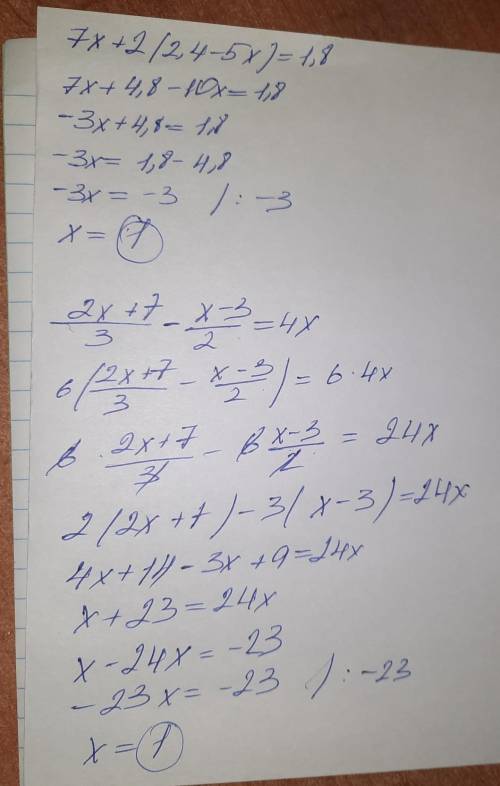 7x+2(2,4-5x)=1,8
7x+4,8-10x=1,8
-3x+4,8=1,8
-3x=1,8-4,8
-3x=-3 /:-3
x=1
2x+7/3 - x-3/2 = 4x
6(2x+7/3 - x-3/2) = 6·4x
6·2x+7/3 - 6 x-3/2 = 24x
2(2x+7)-3(x-3)=24x
4x+14-3x+9=24x
x+23=24x
x-24x=-23
-23x=-23 /:-23
x=1